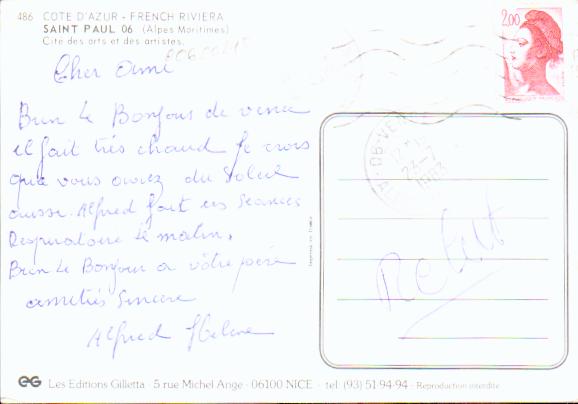 486 COTE D'AZUR - FRENCH RIVIERA
SAINT PAUL 06 (Alpes Maritimes)
Cité des arts et des artistes.
2,00
Cher Ami
Bien Le Bonjour de Vence
il fait très chaud Je crois
que vous avez du Soleil
aussi. Alfred fait ces Séances
Respiratoire Le matin.
Bien Le Bonjour a vôtre père
amitiés Sincère
Alfred Helene
06 VEN
22-7
1983
Imprimé en France
Les Editions Gilletta - 5 rue Michel Ange - 06100 NICE - tel: (93) 51-94-94 - Reproduction interdite